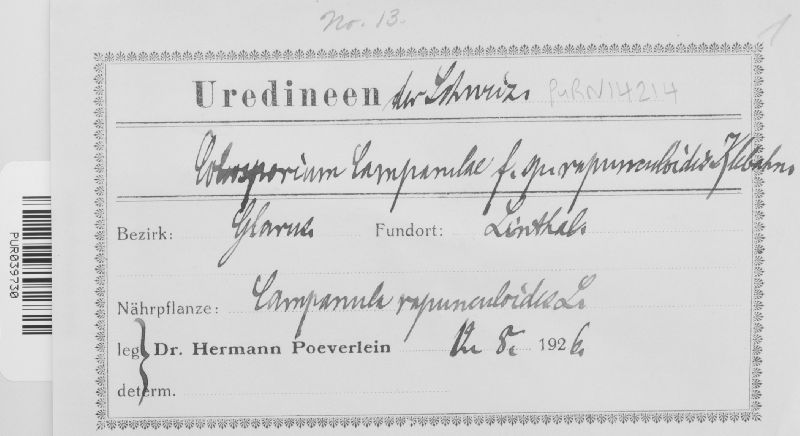 No. 13.
1
Uredineen der Schweiz. PURN14214
Coleosporium Campanulae f. sp. rapunculoidis Klebahn.
Bezirk: Glarus. Fundort: Linthal.
Nährpflanze: Campanula rapunculoides L.
leg. Dr. Hermann Poeverlein 12. 8. 1926.
determ.
PUR039730